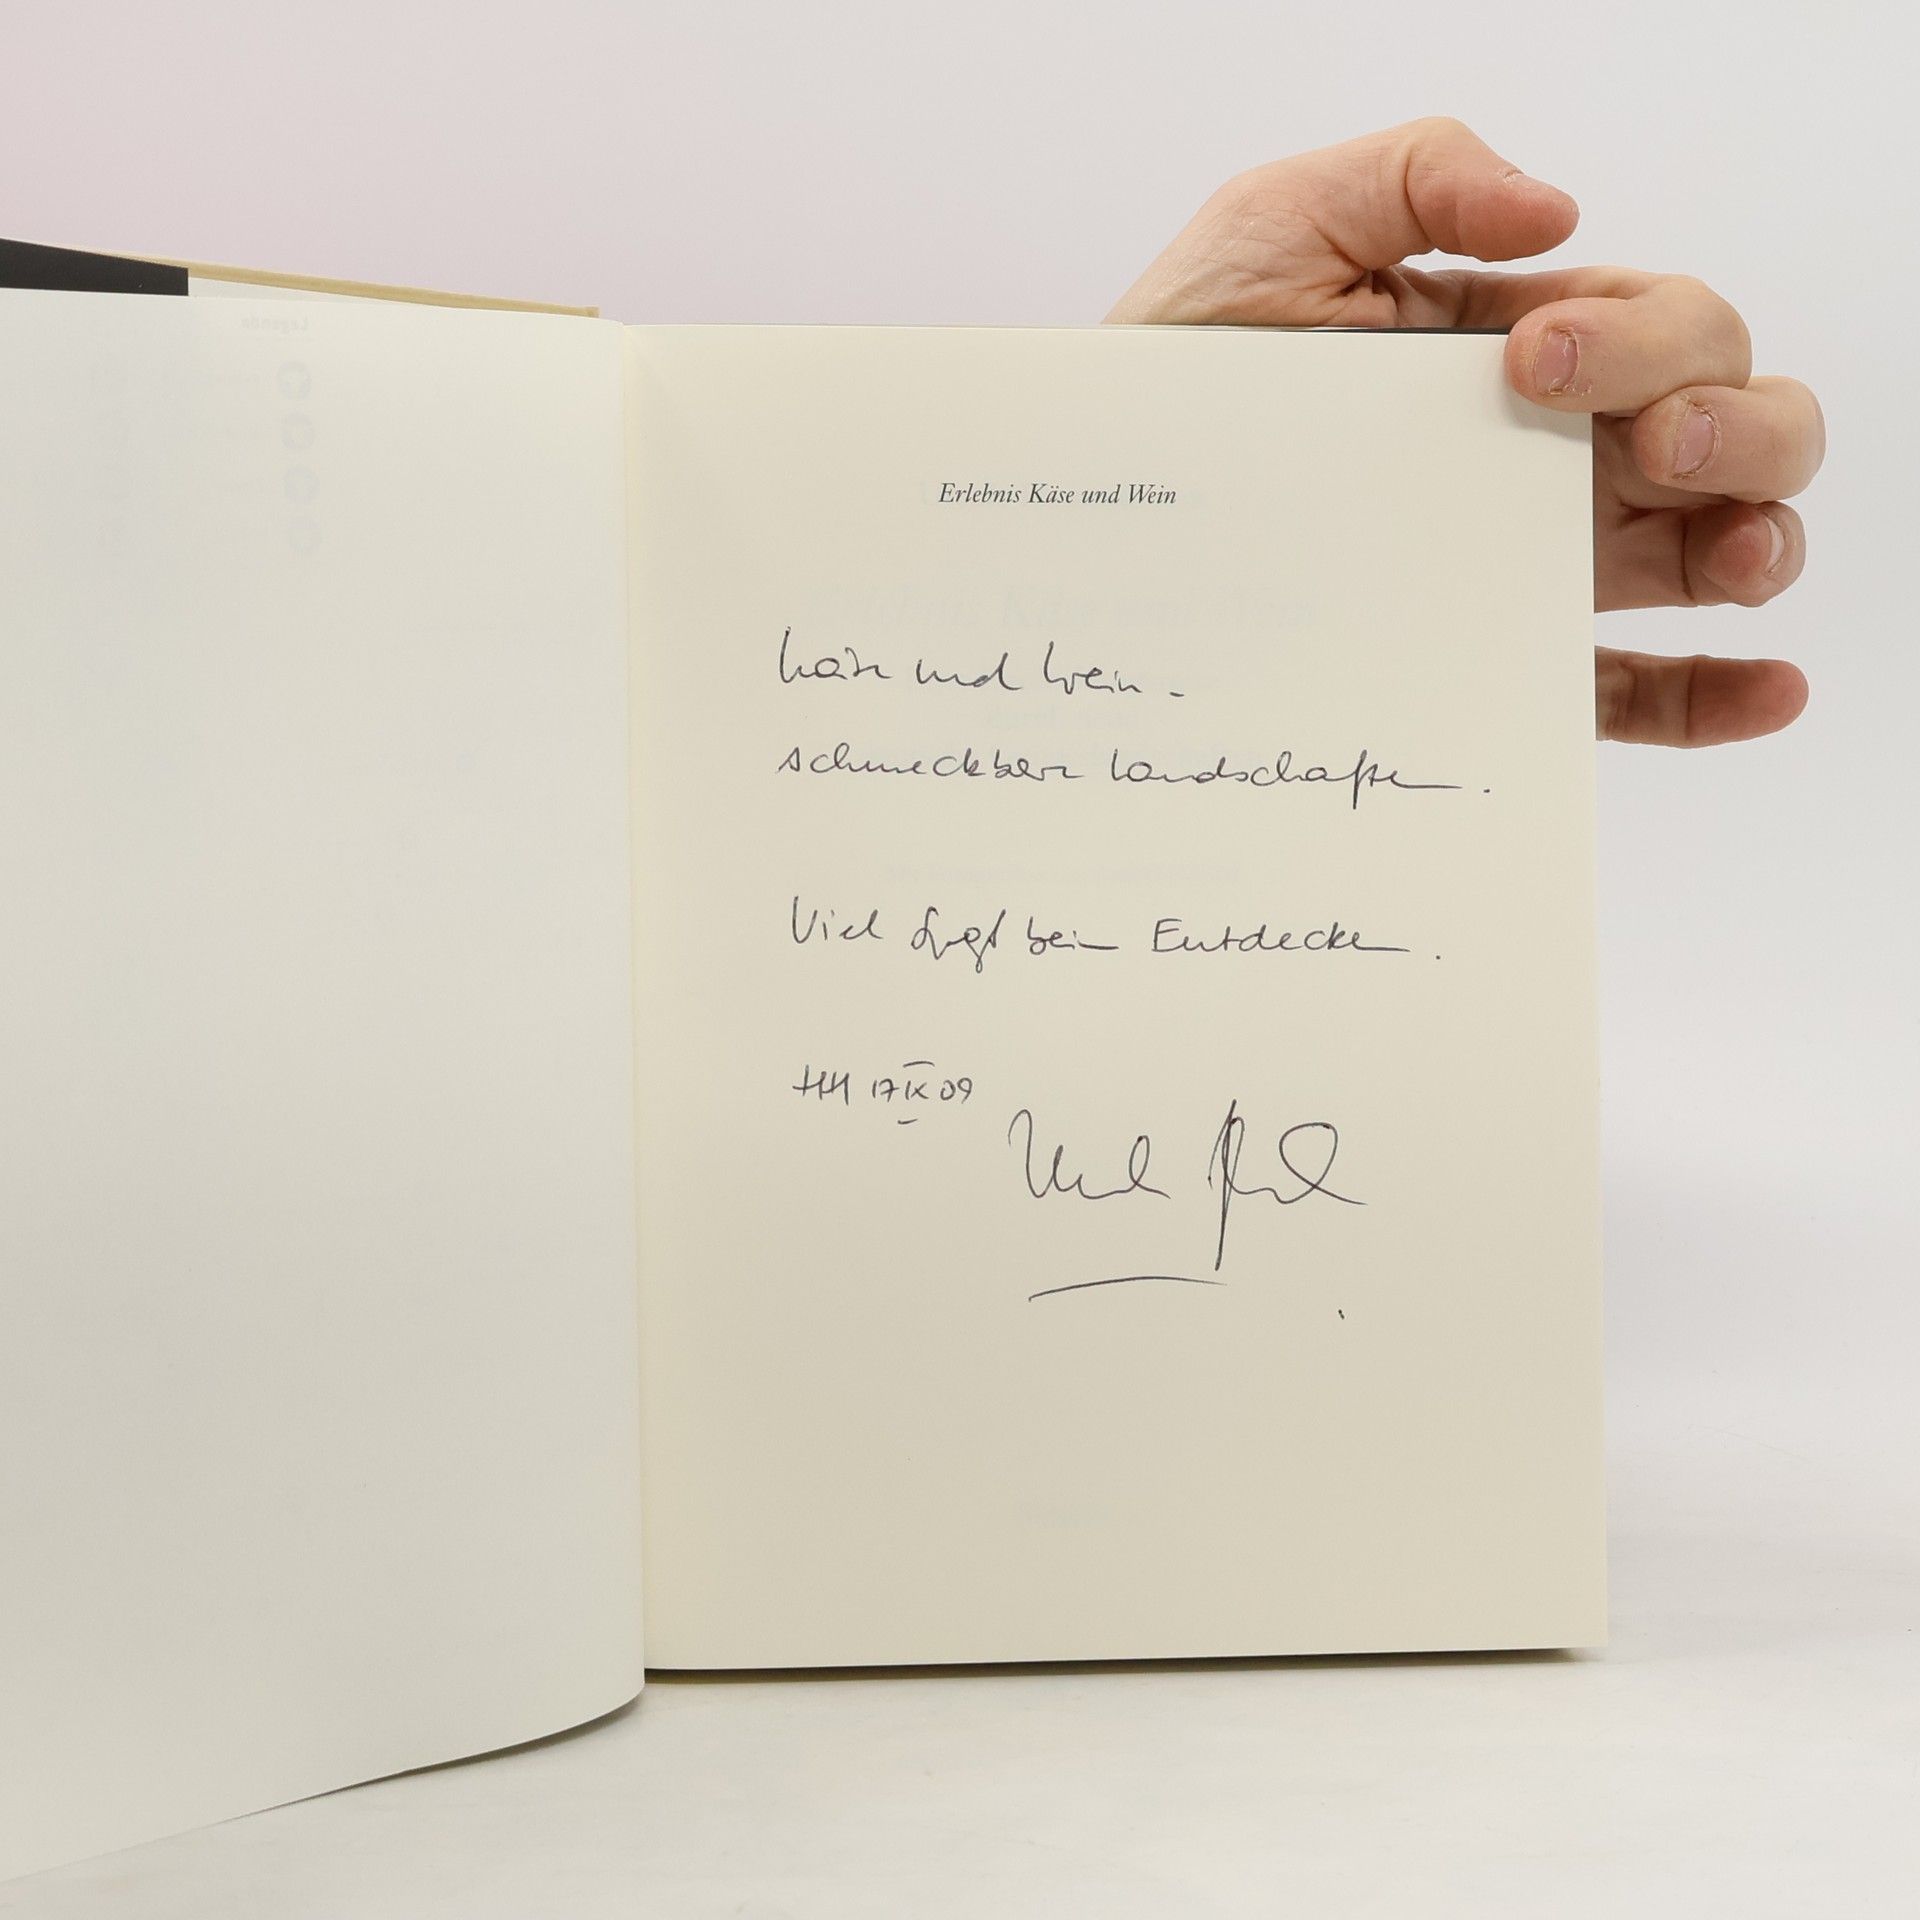 Legende
Erlebnis Käse und Wein
Käse und Wein -
schmeckbare Landschaften.
Viel Spaß beim Entdecken.
HH 17 IX 09